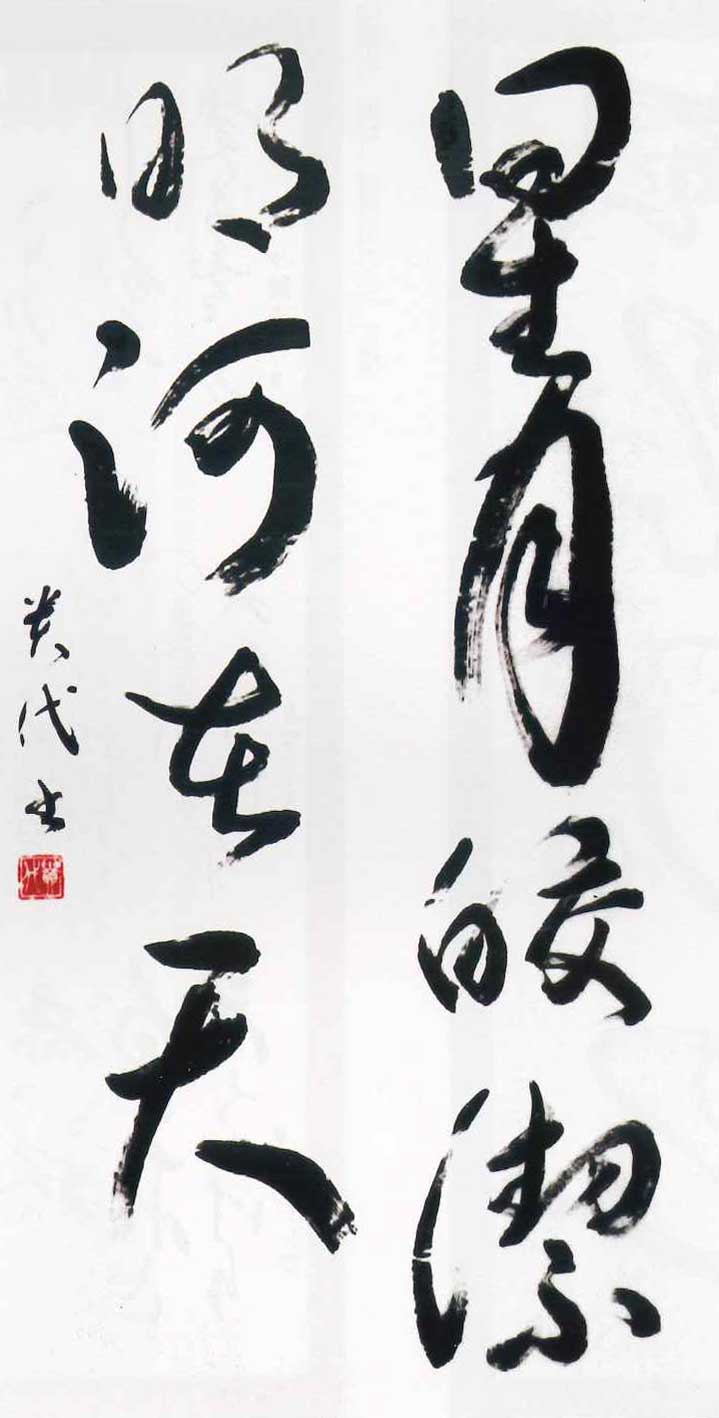 星月皎潔
明河在天
代书